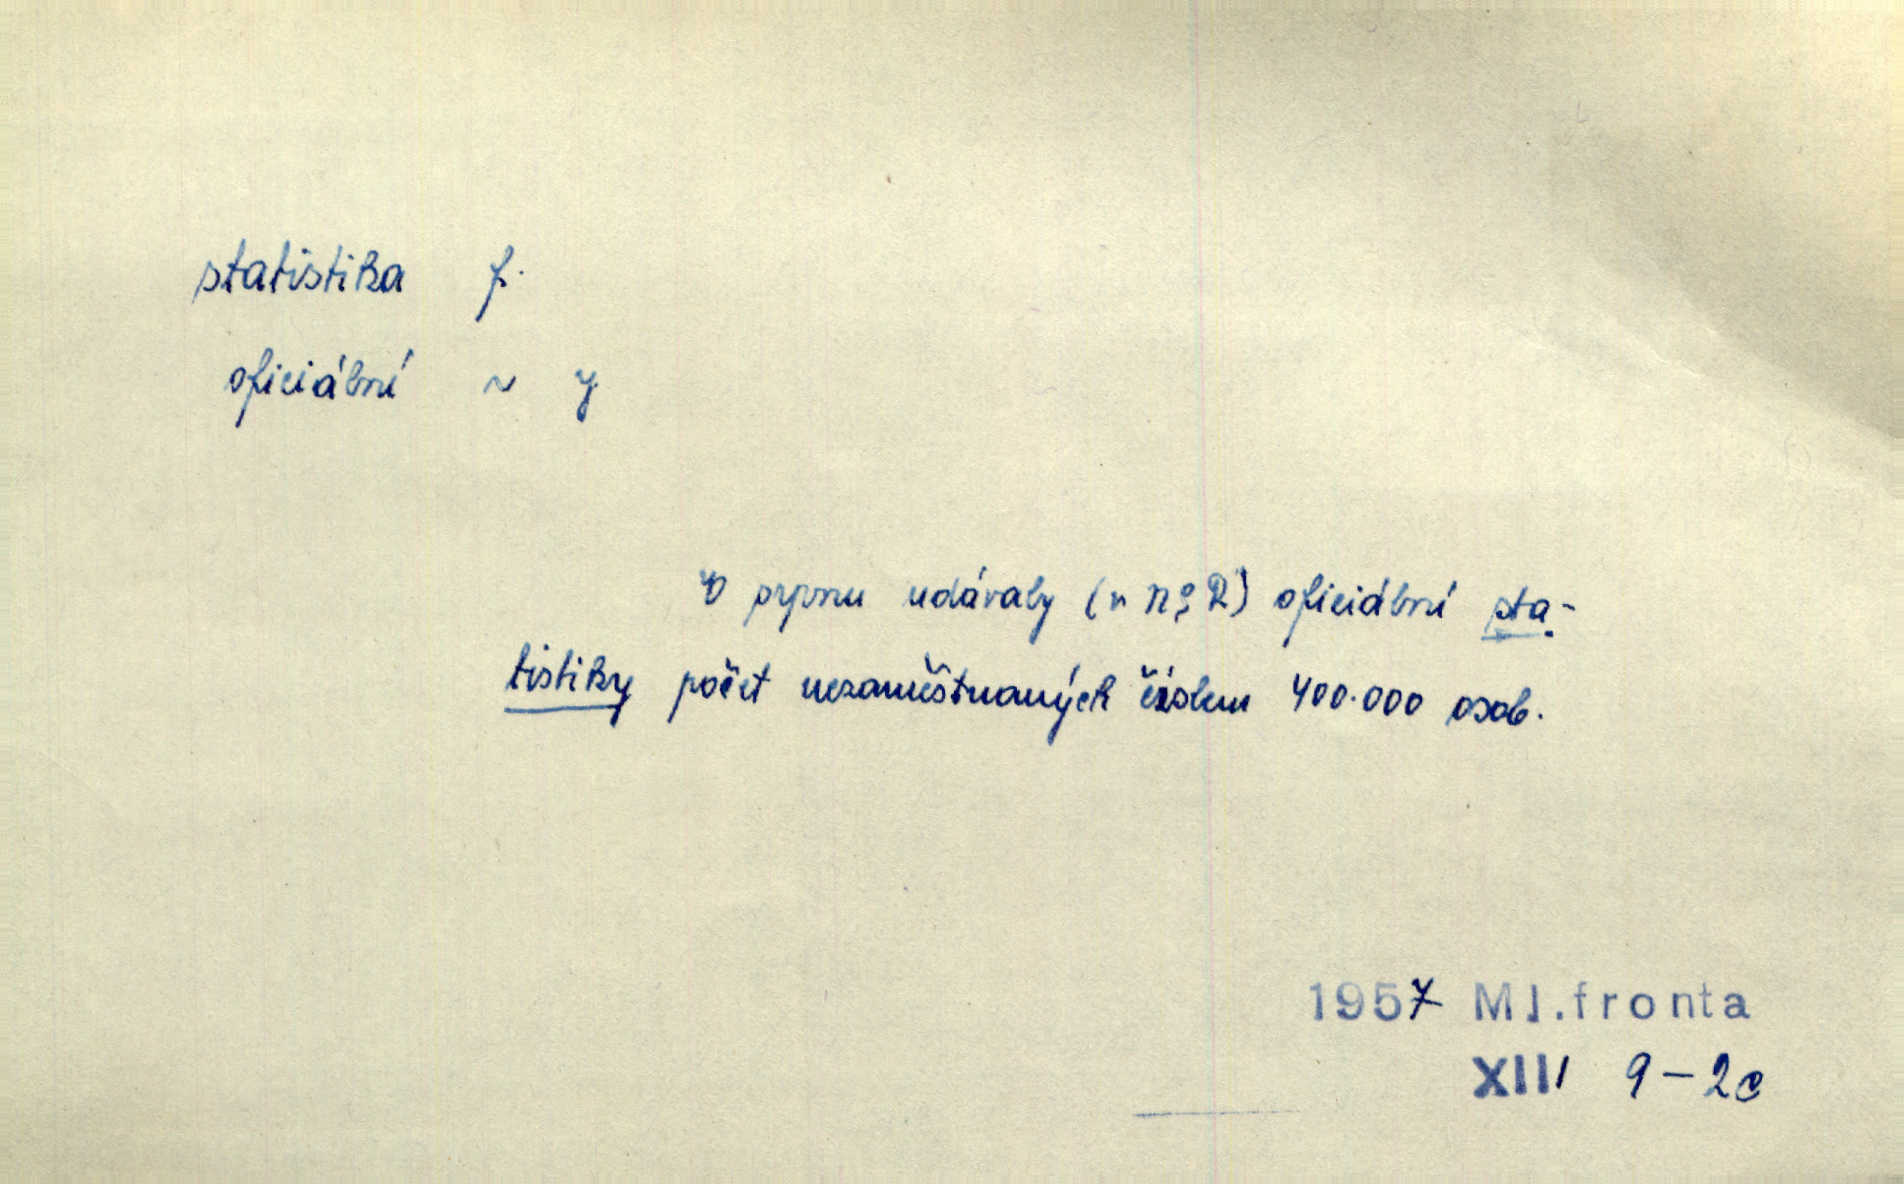 statistika f.
oficiální ~ y
V srpnu udávaly (v NSR) oficiální sta-
tistiky počet nezaměstnaných číslem 400.000 osob.
1957 Ml.fronta
XIII 9-2c